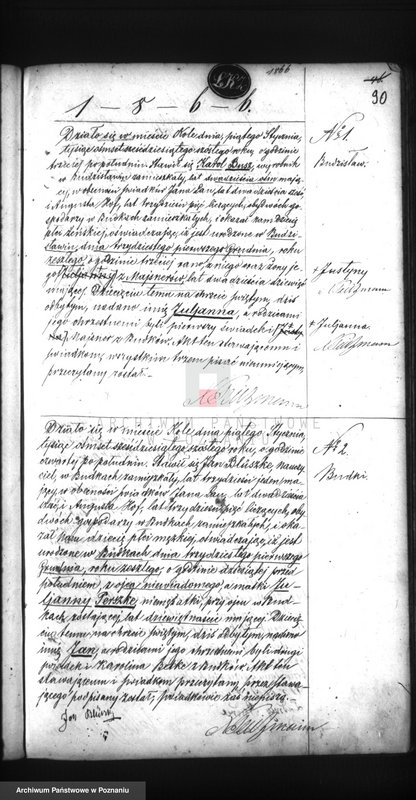 1866
90
1 – 8 – 6 – 6.
Działo się w mieście Kole dnia, piątego Stycznia,
tysiąc ośmset sześćdziesiątego szóstego roku, o godzinie
trzeciej po południu. Stawił się Karol Busz, wyrobnik
w Budzisławiu zamieszkały, lat dwadzieścia ośm mają-
cy, w obecności świadków Jana Lau, lat dwadzieścia
i Augusta Hof, lat trzydzieści pięć liczących, obydwóch go-
spodarzy w Budkach zamieszkałych, i okazał nam dziecię
płci żeńskiej, oświadczając, iż jest urodzone w Budzi-
sławiu, dnia trzydziestego pierwszego Grudnia, roku
zeszłego, o godzinie trzeciej rano, z niego oraz żony je-
go z Majznerów, lat dwadzieścia dziewięć
mającej. Dziecięciu temu na chrzcie świętym, dziś
odbytym, nadano imię Juljanna, a rodzicami
jego chrzestnemi byli pierwszy świadek i
Majzner z Budków. Akt ten stawającemu i
świadkom, wszystkim trzem pisać nieumiejącym,
przeczytany został.
No 1.
Budzisław.
+ Justyny
+ Juljanna.
ARCHIWUM PAŃSTWOWE
W POZNANIU
Działo się w mieście Kole, dnia piątego Stycznia,
tysiąc ośmset sześćdziesiątego szóstego, roku, o godzinie
czwartej po południu. Stawił się Jan Bluszke, nauczy-
ciel, w Budkach zamieszkały, lat trzydzieści jeden mają-
cy w obecności świadków Jana Lau, lat dwadzieścia
i Augusta Hof, lat trzydzieści pięć liczących, oby-
dwóch gospodarzy w Budkach zamieszkałych, i oka-
zał nam dziecię płci męzkiej, oświadczając, iż jest
urodzone w Budkach dnia trzydziestego pierwszego
Grudnia, roku zeszłego, o godzinie dziesiątej przed
południem, z ojca niewiadomego, a matki Ju-
ljanny Peszke, niemężatki, przy ojcu w Bud-
kach zostającej, lat dziewiętnaście mającej. Dzie-
cięciu temu, na chrzcie świętym, dziś odbytym, nadano
imię Jan, a rodzicami jego chrzestnemi byli drugi
świadek i Karolina z Budków. Akt ten
stawającemu i świadkom przeczytany, przez stawa-
jącego podpisany został; świadkowie zaś niepiszą.
No 2.
Budki.
Archiwum Państwowe w Poznaniu